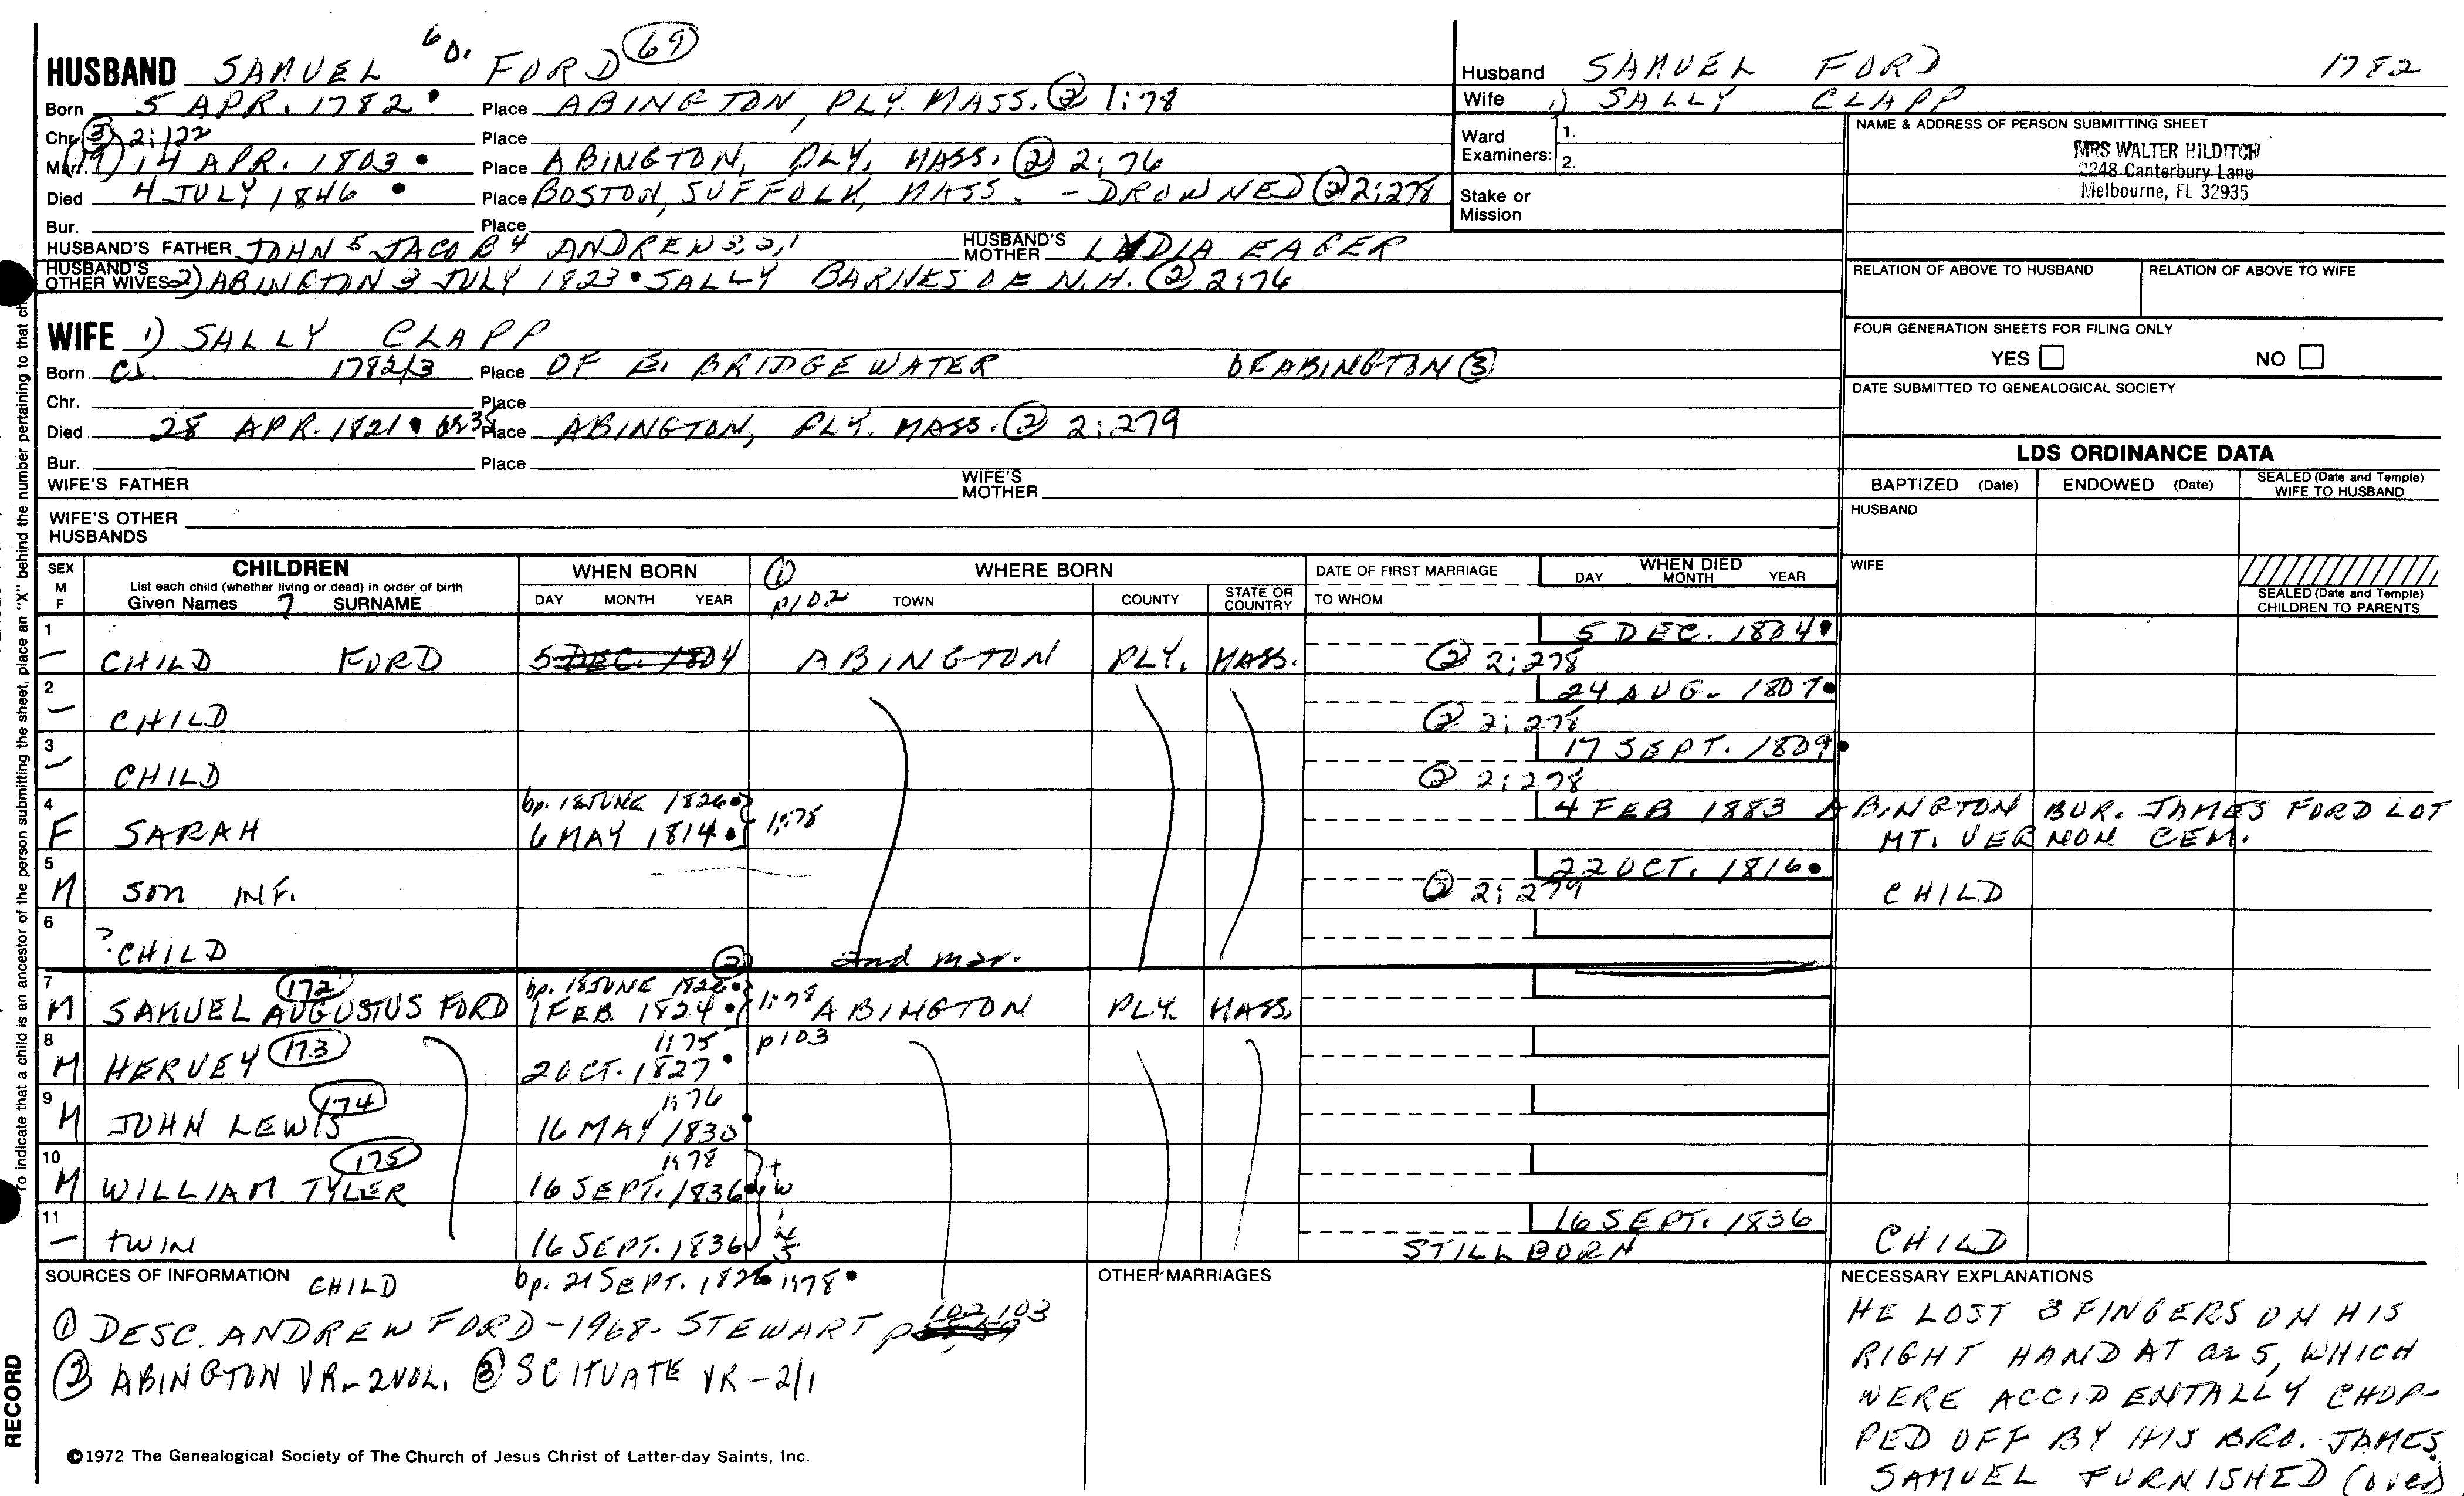 HUSBAND SAMUEL 6 D. FORD 69
Born 5 APR. 1782 • Place ABINGTON, PLY. MASS. ② 1:78
Chr. ③ 2:122 Place
Marr. (19) 14 APR. 1803 • Place ABINGTON, PLY. MASS. ② 2:76
Died 4 JULY 1846 • Place BOSTON, SUFFOLK, MASS. - DROWNED ② 2:278
Bur. Place
HUSBAND'S FATHER JOHN 5 JACOB 4 ANDREW 3,2,1 HUSBAND'S MOTHER LYDIA EAGER
HUSBAND'S OTHER WIVES 2) ABINGTON 3 JULY 1823 • SALLY BARNES OF N.H. ② 2:76
Husband SAMUEL FORD 1782
Wife 1) SALLY CLAPP
Ward Examiners: 1.
2.
Stake or Mission
NAME & ADDRESS OF PERSON SUBMITTING SHEET
MRS WALTER HILDITCH
2248 Canterbury Lane
Melbourne, FL 32935
RELATION OF ABOVE TO HUSBAND RELATION OF ABOVE TO WIFE
FOUR GENERATION SHEETS FOR FILING ONLY
YES NO
DATE SUBMITTED TO GENEALOGICAL SOCIETY
WIFE 1) SALLY CLAPP
Born 1782/3 Place OF E. BRIDGEWATER OF ABINGTON ③
Chr. Place
Died 28 APR. 1821 • Place ABINGTON, PLY. MASS. ② 2:279
Bur. Place
WIFE'S FATHER WIFE'S MOTHER
WIFE'S OTHER HUSBANDS
LDS ORDINANCE DATA
BAPTIZED (Date) ENDOWED (Date) SEALED (Date and Temple) WIFE TO HUSBAND
HUSBAND
WIFE
SEALED (Date and Temple) CHILDREN TO PARENTS
SEX M F
CHILDREN
List each child (whether living or dead) in order of birth
Given Names 7 SURNAME
WHEN BORN
DAY MONTH YEAR
① p102
WHERE BORN
TOWN COUNTY STATE OR COUNTRY
DATE OF FIRST MARRIAGE
TO WHOM
WHEN DIED
DAY MONTH YEAR
1 5 DEC. 1804 •
– CHILD FORD 5 DEC. 1804 ABINGTON PLY. MASS. ② 2:278
2 24 AUG. 1807 •
– CHILD ② 2:278
3 17 SEPT. 1809 •
– CHILD ② 2:278
4 bp. 18 JUNE 1826 • 4 FEB 1883 ABINGTON BUR. JAMES FORD LOT
F SARAH 6 MAY 1814 • 1:78 MT. VERNON CEM.
5 22 OCT. 1816 •
M SON INF. ② 2:279 CHILD
6
? CHILD ② 2nd mar.
7 172 bp. 18 JUNE 1826 •
M SAMUEL AUGUSTUS FORD 1 FEB. 1824 • 1:78 ABINGTON PLY. MASS.
8 173 1:75 p103
M HERVEY 2 OCT. 1827 •
9 174 1:76
M JOHN LEWIS 16 MAY 1830 •
10 175 1:78
M WILLIAM TYLER 16 SEPT. 1836 •
11 16 SEPT. 1836
– TWIN 16 SEPT. 1836 STILLBORN CHILD
SOURCES OF INFORMATION CHILD bp. 21 SEPT. 1826 • 1:78 •
① DESC. ANDREW FORD - 1968 - STEWART p 102, 103
② ABINGTON VR - 2 VOL. ③ SCITUATE VR - 2/1
OTHER MARRIAGES
NECESSARY EXPLANATIONS
HE LOST 3 FINGERS ON HIS
RIGHT HAND AT ae 5, WHICH
WERE ACCIDENTALLY CHOP-
PED OFF BY HIS BRO. JAMES.
SAMUEL FURNISHED (over)
©1972 The Genealogical Society of The Church of Jesus Christ of Latter-day Saints, Inc.
To indicate that a child is an ancestor of the person submitting the sheet, place an "X" behind the number pertaining to that
RECORD